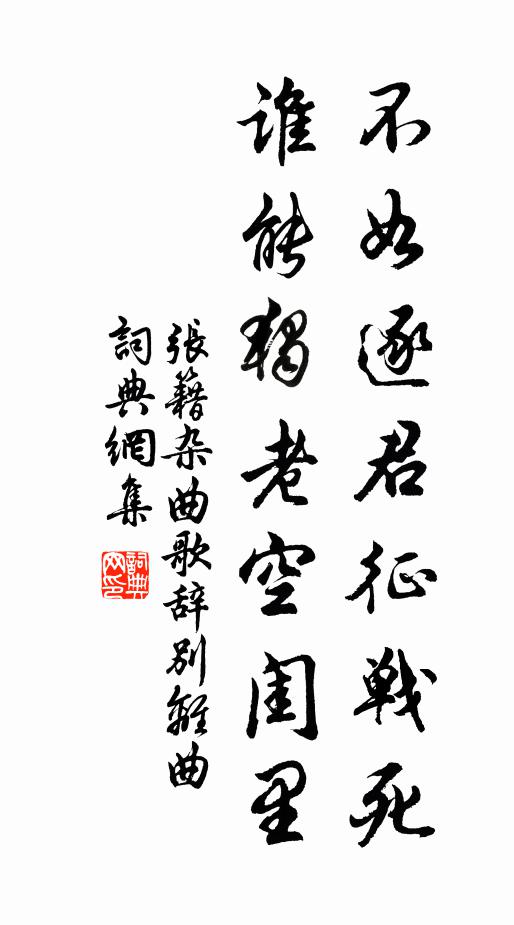 不如逐君征戰死
誰能獨老空閨里
張籍杂曲歌辞別離曲
詞典網集
詞典网印